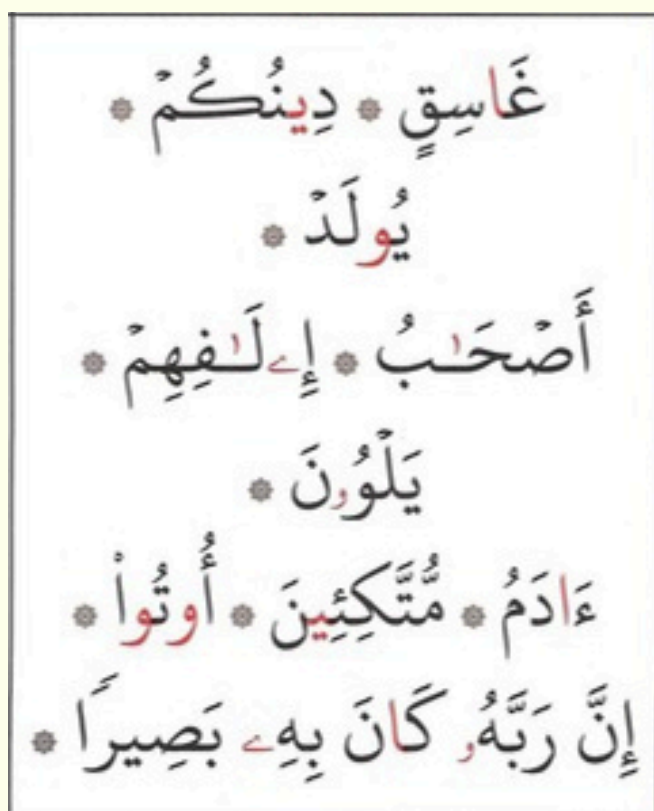 غَاسِقٍ ۞ دِينُكُمۡ ۞
يُولَدۡ ۞
أَصۡحَـٰبُ ۞ إِۦلَـٰفِهِمۡ ۞
يَلۡوُۥنَ ۞
ءَادَمُ ۞ مُّتَّكِـِٔينَ ۞ أُوتُواْ ۞
إِنَّ رَبَّهُۥ كَانَ بِهِۦ بَصِيرٗا ۞